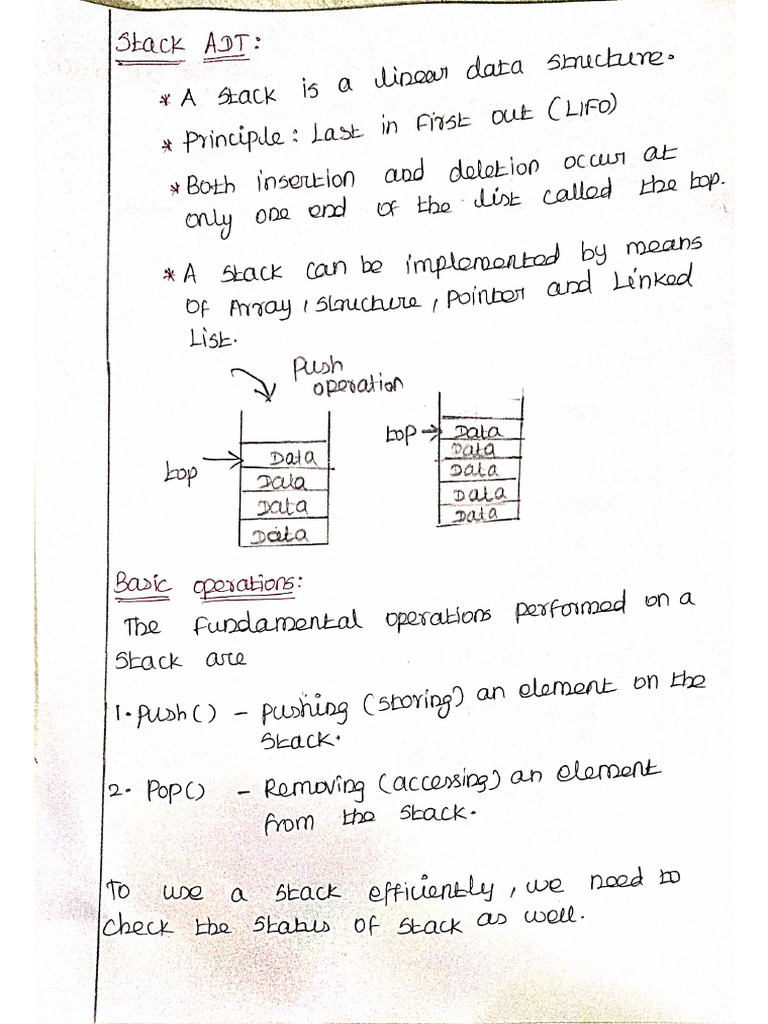 Stack ADT:
* A stack is a linear data structure.
* Principle: Last in First out (LIFO)
* Both insertion and deletion occur at
only one end of the list called the top.
* A stack can be implemented by means
of Array, Structure, Pointer and Linked
List.
Push
operation
top
Data
Data
Data
Data
top
Data
Data
Data
Data
Data
Basic operations:
The fundamental operations performed on a
stack are
1. push() - pushing (storing) an element on the
stack.
2. Pop() - Removing (accessing) an element
from the stack.
To use a stack efficiently, we need to
check the status of stack as well.